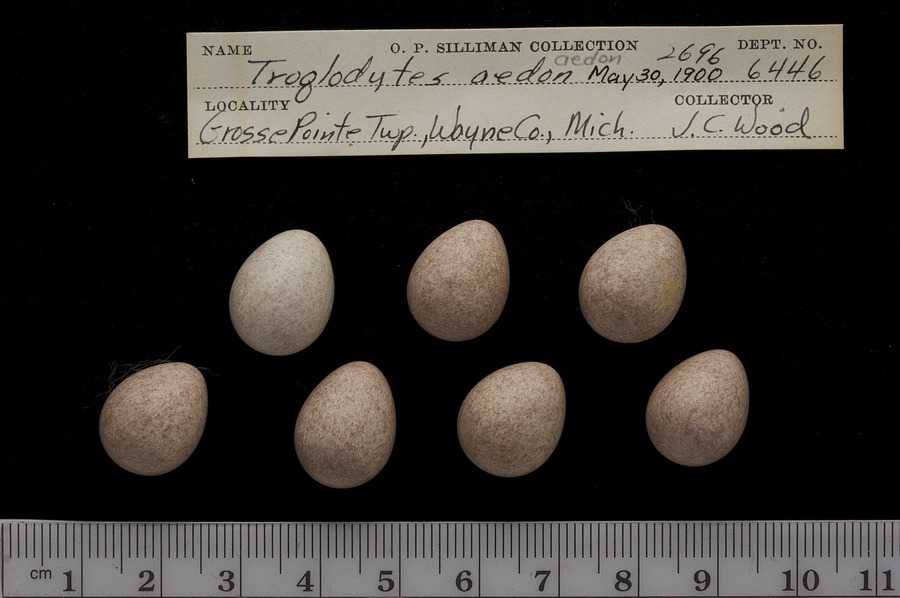 NAME O. P. SILLIMAN COLLECTION 2696 DEPT. NO.
aedon
Troglodytes aedon May 30, 1900 6446
LOCALITY COLLECTOR
Grosse Pointe Twp., Wayne Co., Mich. J. C. Wood
cm 1 2 3 4 5 6 7 8 9 10 11